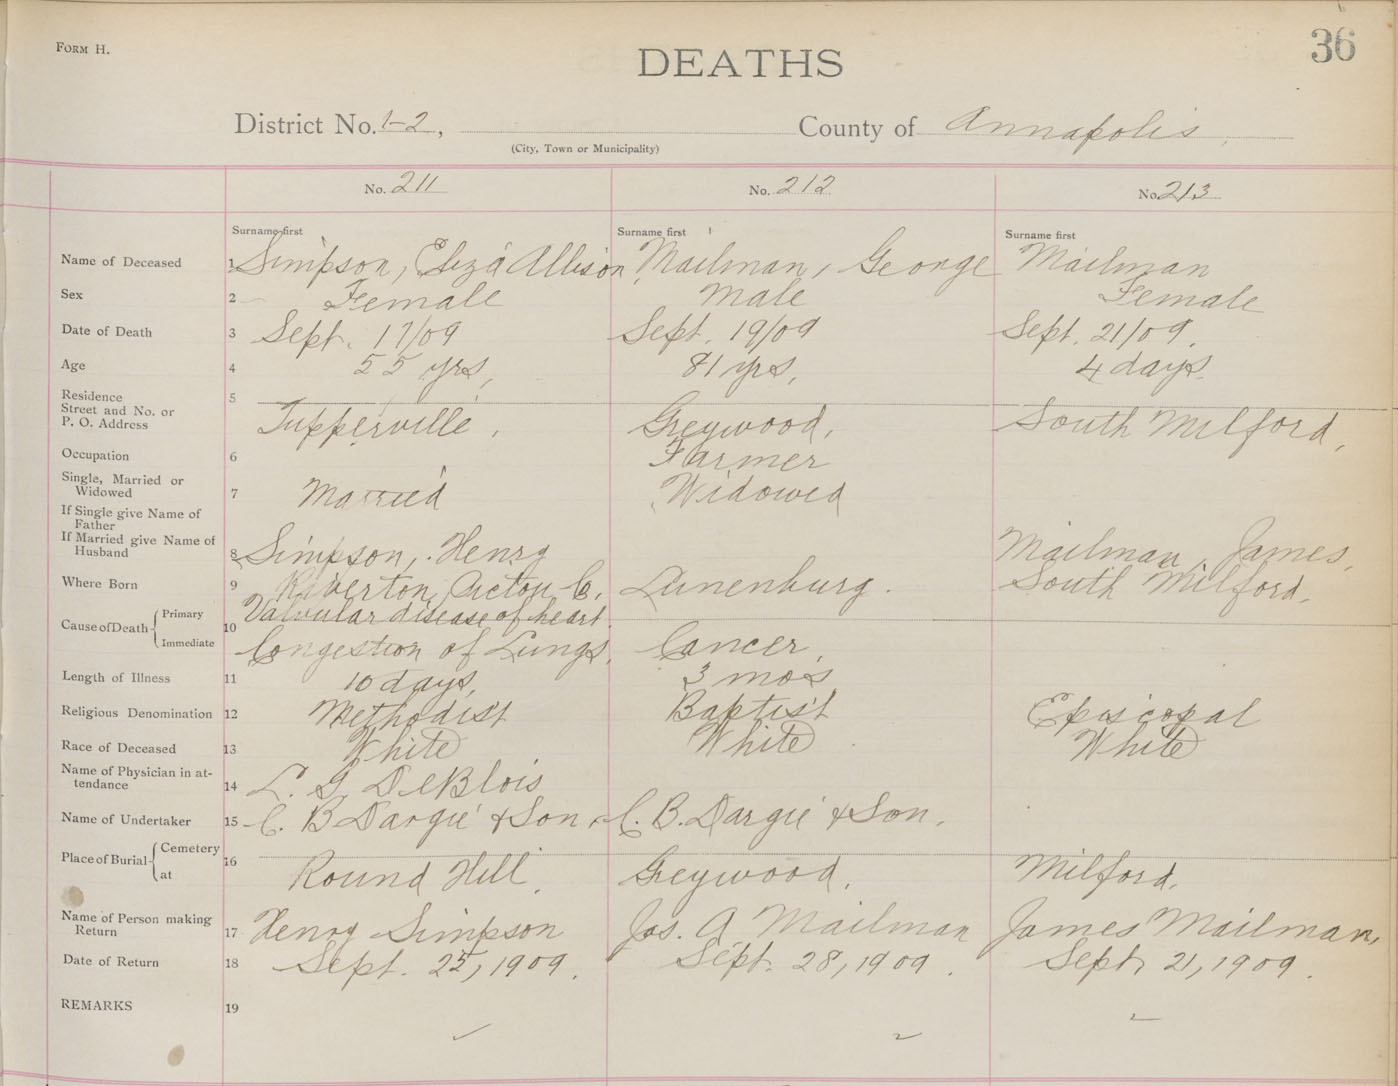 FORM H.
36
DEATHS
District No. 1-2, County of Annapolis
(City, Town or Municipality)
No. 211 No. 212 No. 213
Surname first Surname first Surname first
Name of Deceased 1 Simpson, Eliza Allison Mailman, George Mailman
Sex 2 Female Male Female
Date of Death 3 Sept. 17/09 Sept. 19/09 Sept. 21/09.
Age 4 55 yrs, 81 yrs, 4 days
Residence 5
Street and No. or
P. O. Address Tupperville, Greywood, South Milford,
Occupation 6 Farmer
Single, Married or
Widowed 7 Married Widowed
If Single give Name of
Father
If Married give Name of
Husband 8 Simpson, Henry Mailman, James,
Where Born 9 Riverton, Picton Co. Lunenburg. South Milford,
Cause of Death Primary 10 Valvular disease of heart
Immediate Congestion of Lungs, Cancer,
Length of Illness 11 10 days, 3 mos
Religious Denomination 12 Methodist Baptist Episcopal
Race of Deceased 13 White White White
Name of Physician in at-
tendance 14 L. G. DeBlois
Name of Undertaker 15 C. B Dargie & Son C. B. Dargie & Son.
Place of Burial Cemetery 16
at Round Hill, Greywood, Milford.
Name of Person making
Return 17 Henry Simpson Jas. A Mailman James Mailman,
Date of Return 18 Sept. 25, 1909. Sept. 28, 1909. Sept. 21, 1909.
REMARKS 19